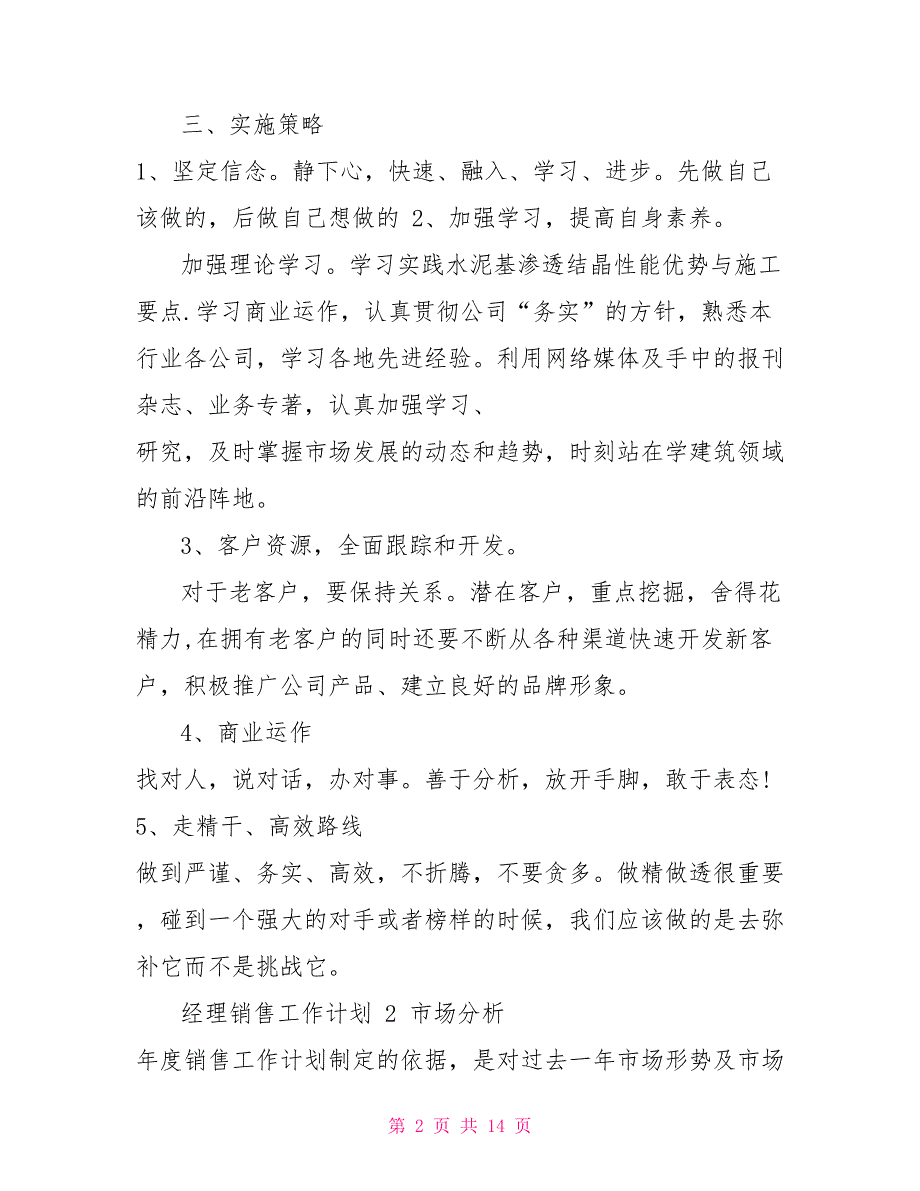 三、实施策略
1、坚定信念。静下心，快速、融入、学习、进步。先做自己
该做的，后做自己想做的 2、加强学习，提高自身素养。
加强理论学习。学习实践水泥基渗透结晶性能优势与施工
要点.学习商业运作，认真贯彻公司“务实”的方针，熟悉本
行业各公司，学习各地先进经验。利用网络媒体及手中的报刊
杂志、业务专著，认真加强学习、
研究，及时掌握市场发展的动态和趋势，时刻站在学建筑领域
的前沿阵地。
3、客户资源，全面跟踪和开发。
对于老客户，要保持关系。潜在客户，重点挖掘，舍得花
精力,在拥有老客户的同时还要不断从各种渠道快速开发新客
户，积极推广公司产品、建立良好的品牌形象。
4、商业运作
找对人，说对话，办对事。善于分析，放开手脚，敢于表态!
5、走精干、高效路线
做到严谨、务实、高效，不折腾，不要贪多。做精做透很重要
，碰到一个强大的对手或者榜样的时候，我们应该做的是去弥
补它而不是挑战它。
经理销售工作计划 2 市场分析
年度销售工作计划制定的依据，是对过去一年市场形势及市场
第 2 页 共 14 页